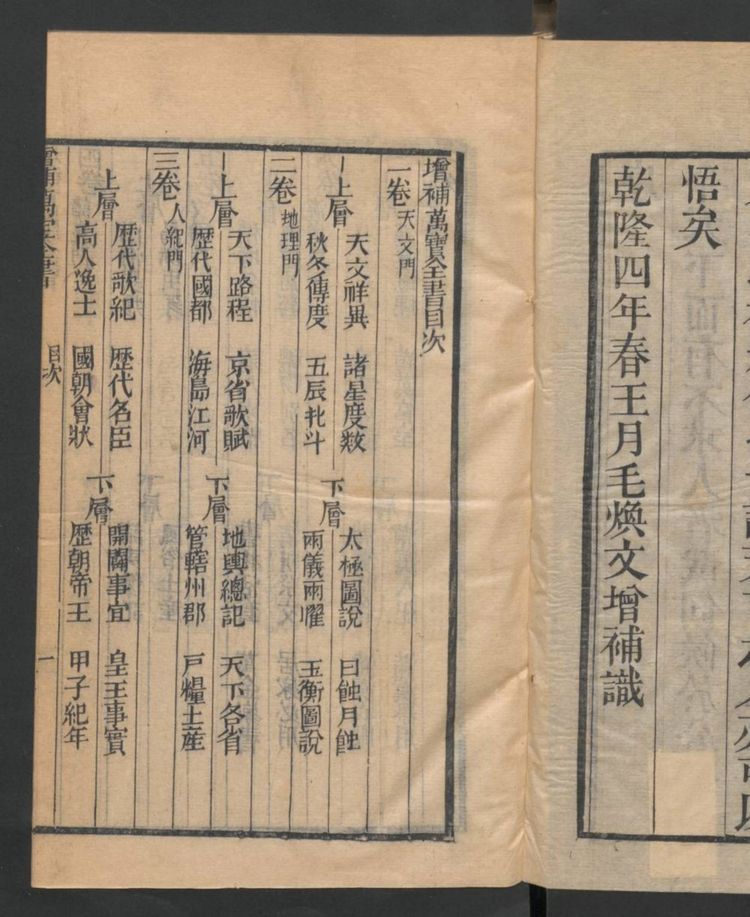 悟矣
乾隆四年春王月毛煥文增補識
增補萬寶全書目次
一卷天文門
上層
天文祥異 諸星度数
秋冬傳度 五辰北斗
下層
太極圖說 日蝕月蝕
兩儀兩曜 玉衡圖說
二卷地理門
上層
天下路程 京省歌賦
歷代國都 海島江河
下層
地輿總記 天下各省
管轄州郡 戸糧土産
三卷人紀門
上層
歴代歌紀 歴代名臣
高人逸士 國朝會狀
下層
開闢事宜 皇王事實
歴朝帝王 甲子紀年
增補萬宝全書 目次 一